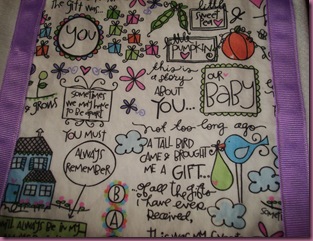 the gift was...
YOU
little
sweet
pea
little
PUMPKIN
this is
a story
ABOUT
YOU...
OUR
BABY
sometimes
we may have
to be apart
grows
YOU MUST
ALWAYS
REMEMBER
not too long ago
A TALL BIRD
CAME & BROUGHT
ME A GIFT...
of all the gifts
i have ever
received,
B
A
ALWAYS BE IN MY